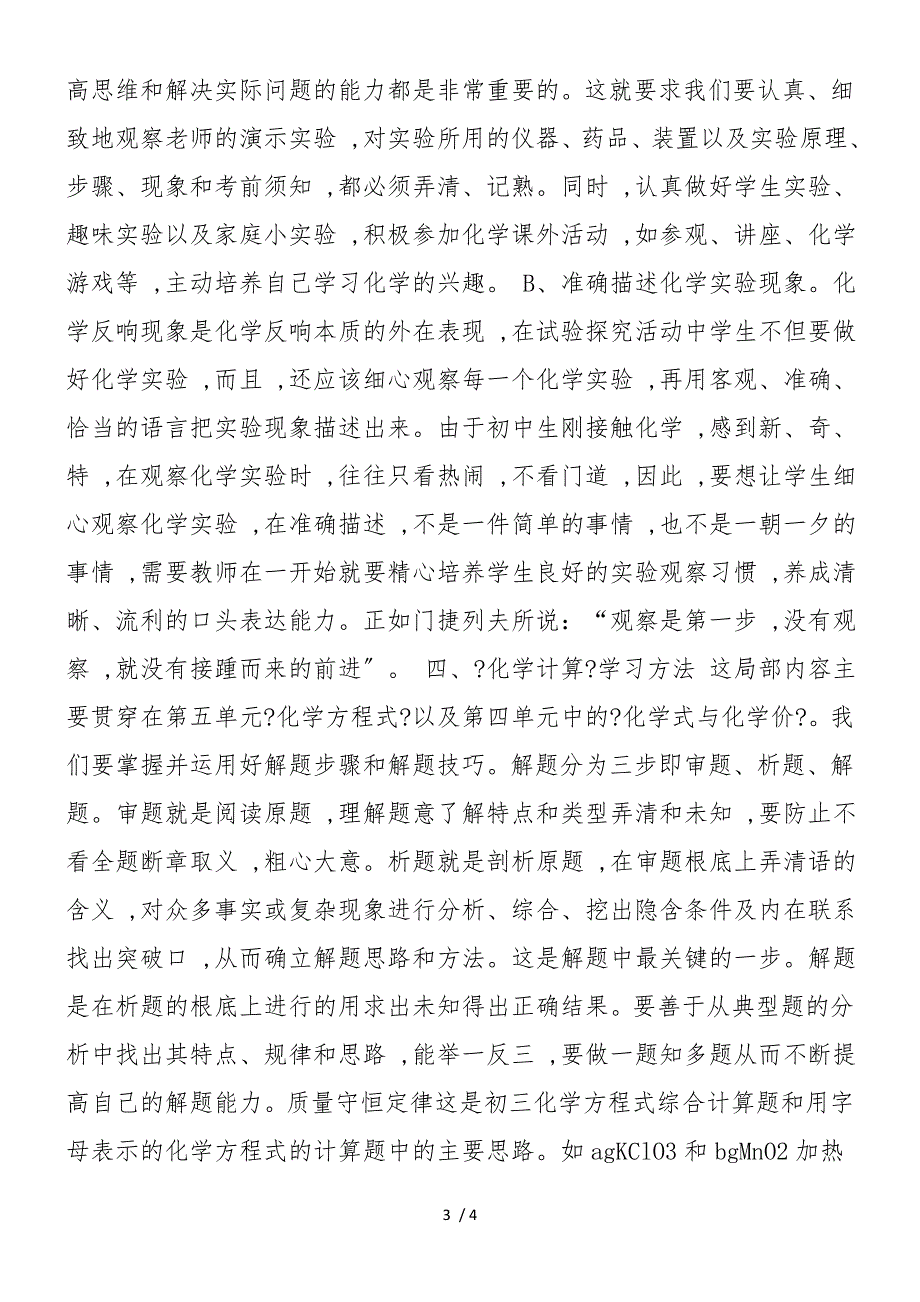 高思维和解决实际问题的能力都是非常重要的。这就要求我们要认真、细
致地观察老师的演示实验 ,对实验所用的仪器、药品、装置以及实验原理、
步骤、现象和考前须知 ,都必须弄清、记熟。同时 ,认真做好学生实验、
趣味实验以及家庭小实验 ,积极参加化学课外活动 ,如参观、讲座、化学
游戏等 ,主动培养自己学习化学的兴趣。 B、准确描述化学实验现象。化
学反响现象是化学反响本质的外在表现 ,在试验探究活动中学生不但要做
好化学实验 ,而且 ,还应该细心观察每一个化学实验 ,再用客观、准确、
恰当的语言把实验现象描述出来。由于初中生刚接触化学 ,感到新、奇、
特 ,在观察化学实验时 ,往往只看热闹 ,不看门道 ,因此 ,要想让学生细
心观察化学实验 ,在准确描述 ,不是一件简单的事情 ,也不是一朝一夕的
事情 ,需要教师在一开始就要精心培养学生良好的实验观察习惯 ,养成清
晰、流利的口头表达能力。正如门捷列夫所说：“观察是第一步 ,没有观
察 ,就没有接踵而来的前进〞。 四、?化学计算?学习方法 这局部内容主
要贯穿在第五单元?化学方程式?以及第四单元中的?化学式与化学价?。我
们要掌握并运用好解题步骤和解题技巧。解题分为三步即审题、析题、解
题。审题就是阅读原题 ,理解题意了解特点和类型弄清和未知 ,要防止不
看全题断章取义 ,粗心大意。析题就是剖析原题 ,在审题根底上弄清语的
含义 ,对众多事实或复杂现象进行分析、综合、挖出隐含条件及内在联系
找出突破口 ,从而确立解题思路和方法。这是解题中最关键的一步。解题
是在析题的根底上进行的用求出未知得出正确结果。要善于从典型题的分
析中找出其特点、规律和思路 ,能举一反三 ,要做一题知多题从而不断提
高自己的解题能力。质量守恒定律这是初三化学方程式综合计算题和用字
母表示的化学方程式的计算题中的主要思路。如 agKClO3 和 bgMnO2 加热
3 / 4